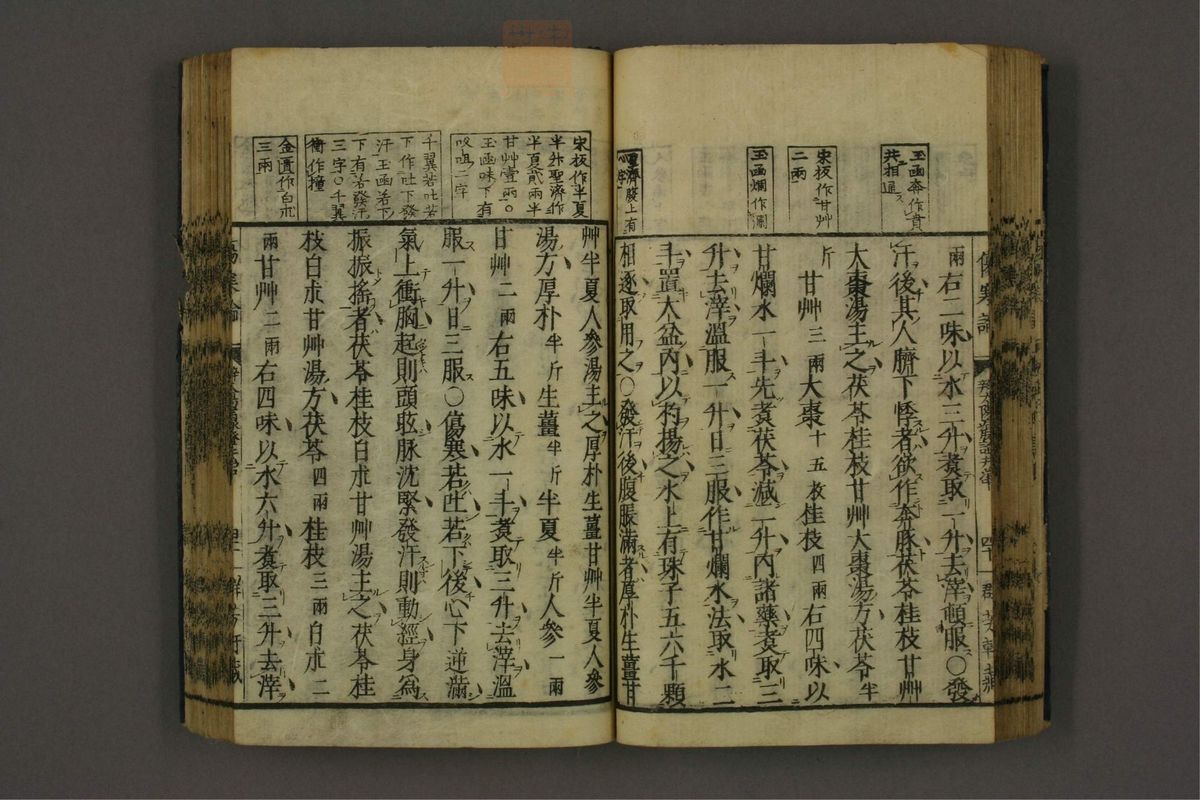 玉函奔作賁
共相通
宋板作甘艸
二兩
玉函爛作瀾
發上有
傷寒論
兩右二味以水三升煑取一升去滓頓服〇發
汗後其人臍下悸者欲作奔豚茯苓桂枝甘艸
大棗湯主之茯苓桂枝甘艸大棗湯方茯苓半
斤甘艸三兩大棗十五枚桂枝四兩右四味以
甘爛水一斗先煑茯苓減二升內諸藥煑取三
升去滓溫服一升日三服作甘爛水法取水二
斗置大盆內以杓揚之水上有珠子五六千顆
相逐取用之〇發汗後腹脹滿者厚朴生薑甘
宋板作半夏
半升聖濟作
半夏貳兩半
甘艸壹兩〇
玉函味下有
㕮咀二字
千翼若吐若
下作吐下發
汗玉函若下
下有若發汗
三字〇千翼
衝作撞
金匱作白朮
三兩
艸半夏人參湯主之厚朴生薑甘艸半夏人參
湯方厚朴半斤生薑半斤半夏半斤人參一兩
甘艸二兩右五味以水一斗煑取三升去滓溫
服一升日三服〇傷寒若吐若下後心下逆滿
氣上衝胸起則頭眩脉沈緊發汗則動經身爲
振振搖者茯苓桂枝白朮甘艸湯主之茯苓桂
枝白朮甘艸湯方茯苓四兩桂枝三兩白朮二
兩甘艸二兩右四味以水六升煑取三升去滓
傷寒論